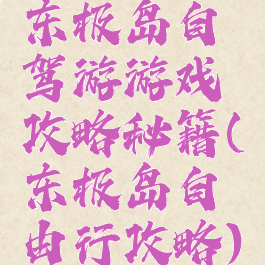 东极岛自
驾游游戏
攻略秘籍(
东极岛自
由行攻略)